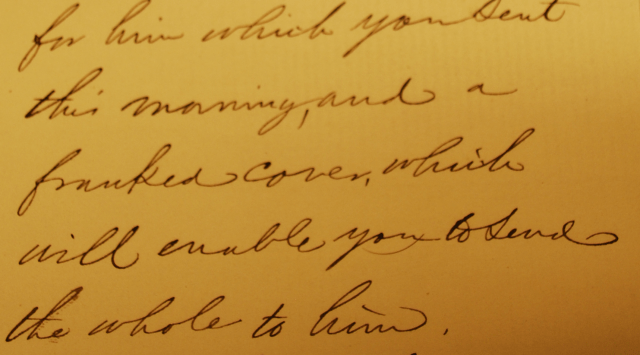 for him which you sent
this morning, and a
franked cover, which
will enable you to send
the whole to him.